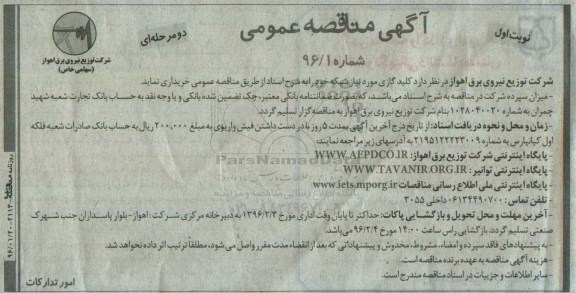 نوبت اول
آگهی مناقصه عمومی
دو مرحله‌ای
شماره ۹۶/۱
شرکت توزیع نیروی برق اهواز
(سهامی خاص)
شرکت توزیع نیروی برق اهواز در نظر دارد کلید گازی مورد نیاز شبکه خود را به شرح اسناد از طریق مناقصه عمومی خریداری نماید.
- میزان سپرده شرکت در مناقصه به شرح اسناد می‌باشد، که بصورت ضمانتنامه بانکی معتبر، چک تضمین شده بانکی و یا وجه نقد به حساب بانک تجارت شعبه شهید
چمران به شماره ۱۰۲۸۰۴۰۰۲۰ بنام شرکت توزیع نیروی برق اهواز به مناقصه‌گزار تسلیم گردد.
- زمان و محل و نحوه دریافت اسناد: از تاریخ درج آخرین آگهی بمدت ۵ روز با در دست داشتن فیش واریزی به مبلغ ۲۰۰,۰۰۰ ریال به حساب بانک صادرات شعبه فلکه
اول کیانپارس به شماره ۲۱۹۵۱۲۲۲۲۳۰۰۹ به آدرسهای زیر مراجعه نمایند:
- پایگاه اینترنتی شرکت توزیع برق اهواز: WWW.AEPDCO.IR
- پایگاه اینترنتی توانیر: WWW.TAVANIR.ORG.IR
- پایگاه اینترنتی ملی اطلاع رسانی مناقصات www.iets.mporg.ir
- تلفن تماس: ۰۶۱۳۴۴۹۰۷۰۰ داخلی ۳۰۵۵
- آخرین مهلت و محل تحویل و بازگشایی پاکات: حداکثر تا پایان وقت اداری مورخ ۱۳۹۶/۲/۳ به دبیرخانه مرکزی شرکت: اهواز-بلوار پاسداران جنب شهرک
صنعتی تسلیم گردد. بازگشایی راس ساعت ۱۴:۰۰ مورخ ۹۶/۲/۴ می‌باشد.
- به پیشنهادهای فاقد سپرده و امضاء، مشروط، مخدوش و پیشنهاداتی که بعد از انقضاء مدت مقرر واصل می‌شود، مطلقاً ترتیب اثر داده نخواهد شد.
- هزینه آگهی مناقصه به عهده برنده مناقصه است.
- سایر اطلاعات و جزییات در اسناد مناقصه مندرج است.
امور تدارکات
ParsNamadData